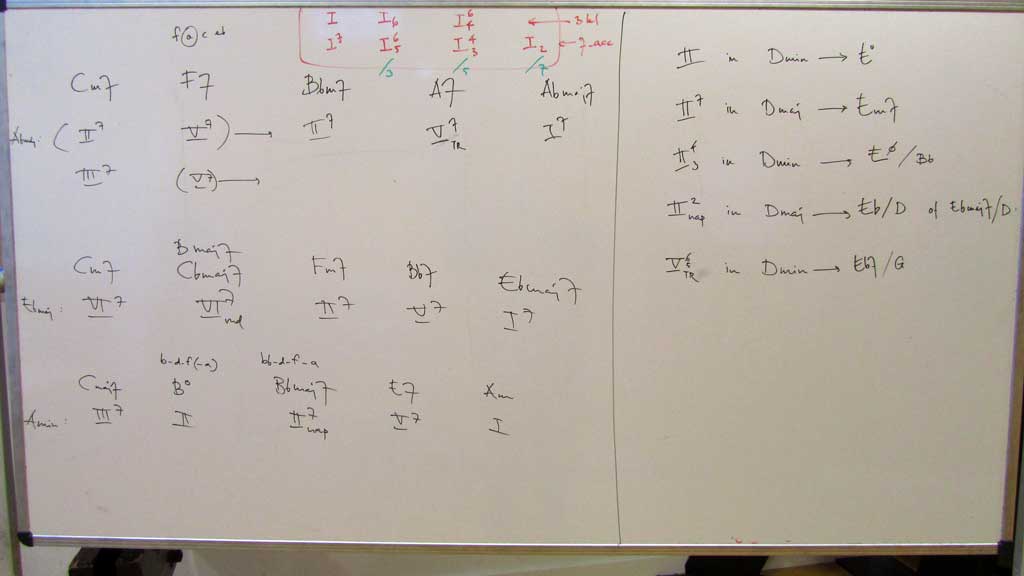 f a c eb
I I6 I6/4 ← 3kl
I7 I6/5 I4/3 I2 ←
/3 /5 /7
Cm7 F7 Bbm7 A7 Abmaj7
Abmaj: ( II7 V7 ) → II7 V7 TR I7
III7 (V7) →
Bmaj7
Cm7 Cbmaj7 Fm7 Bb7 Ebmaj7
Ebmaj: VI7 VI7 II7 V7 I7
b-d-f(-a) bb-d-f-a
Cmaj7 B° Bbmaj7 E7 Am
Amin: III7 II II7 nap V7 I
II in Dmin → E°
II7 in Dmaj → Em7
II4/3 in Dmin → Eø/Bb
II2 nap in Dmaj → Eb/D of Ebmaj7/D.
V6/5 TR in Dmin → Eb7/G